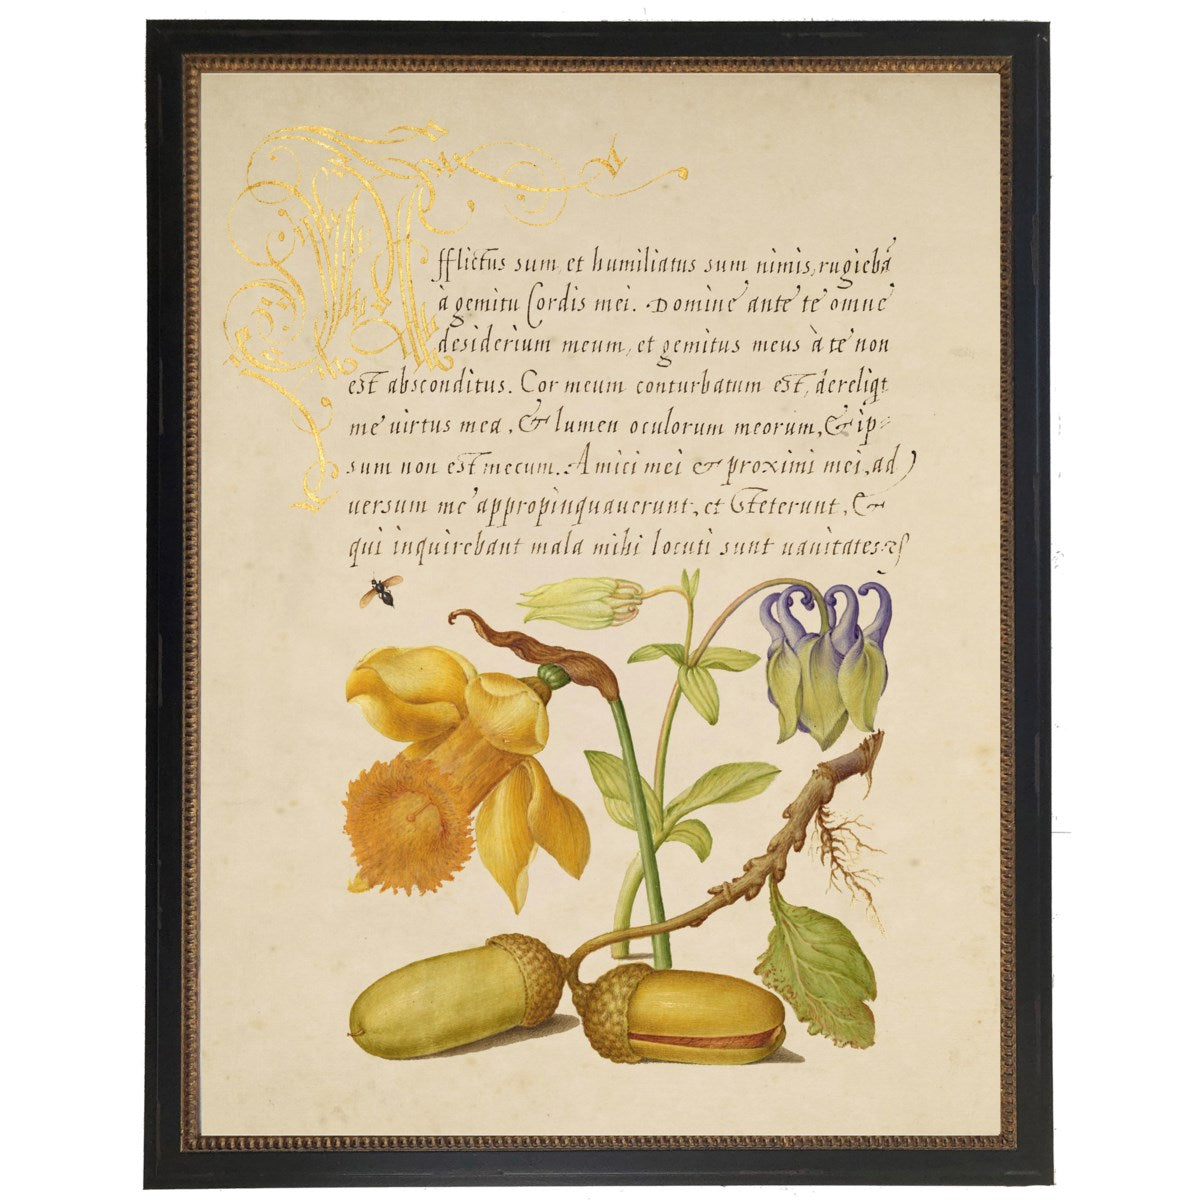 Afflictus sum, et humiliatus sum nimis, rugiebā
à gemitu Cordis mei. Domine ante te omne
desiderium meum, et gemitus meus à te non
est absconditus. Cor meum conturbatum est, dereliqt
me uirtus mea, & lumen oculorum meorum, & ip-
sum non est mecum. Amici mei & proximi mei, ad
uersum me appropinquauerunt, et steterunt, &
qui inquirebant mala mihi locuti sunt uanitates